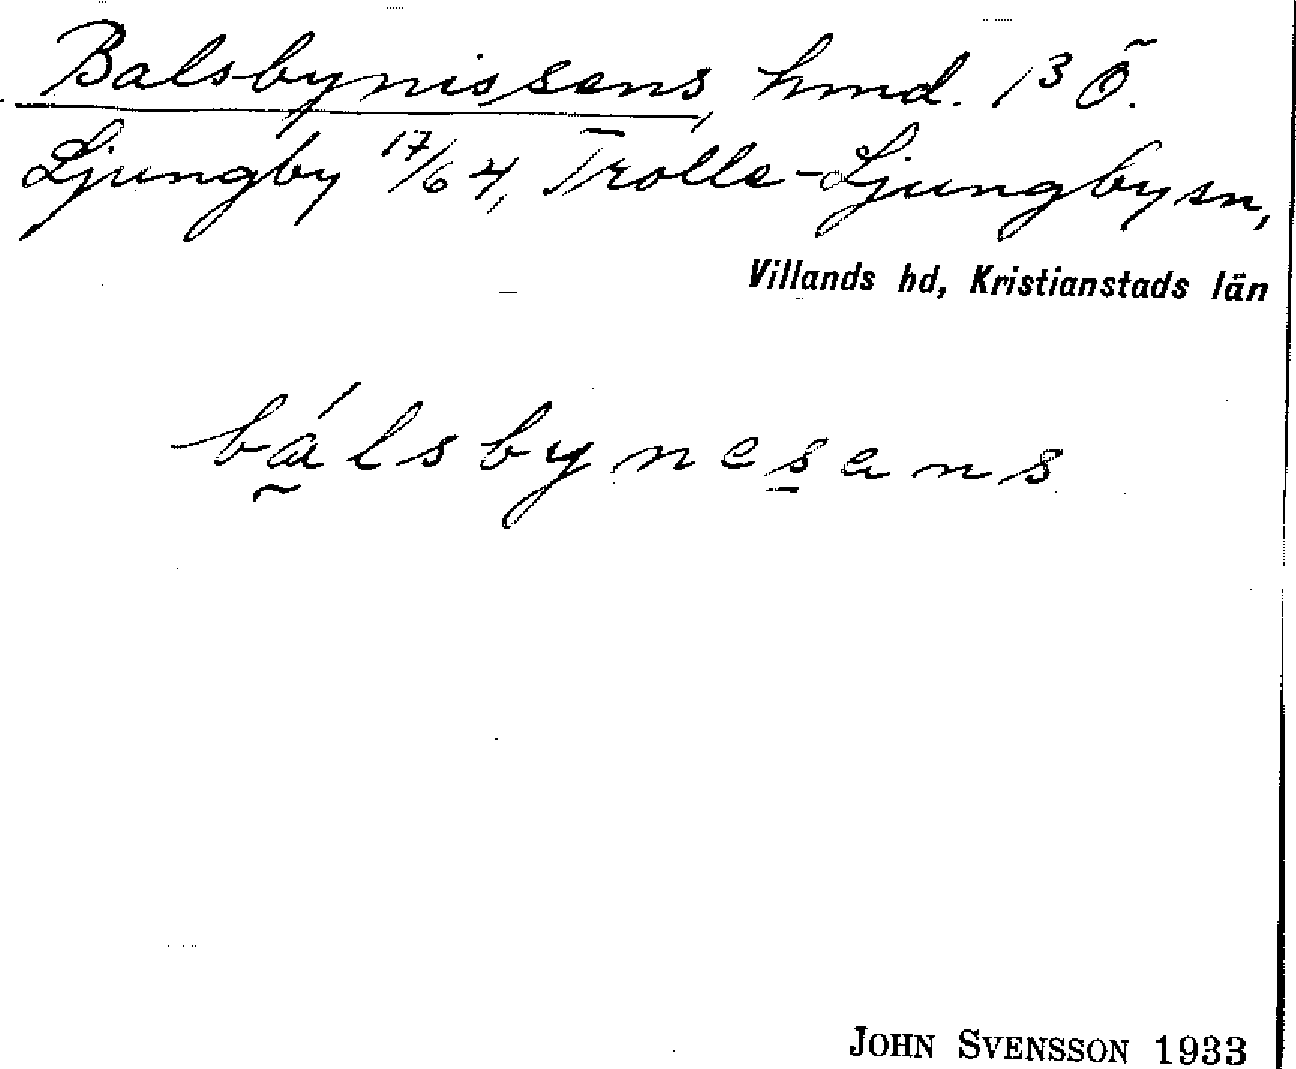 Balsbynissens, hmd. 1³ Ö.
Ljungby 17/64, Trolle-Ljungby sn,
Villands hd, Kristianstads län
bá̰lsbynes̲ens
JOHN SVENSSON 1933